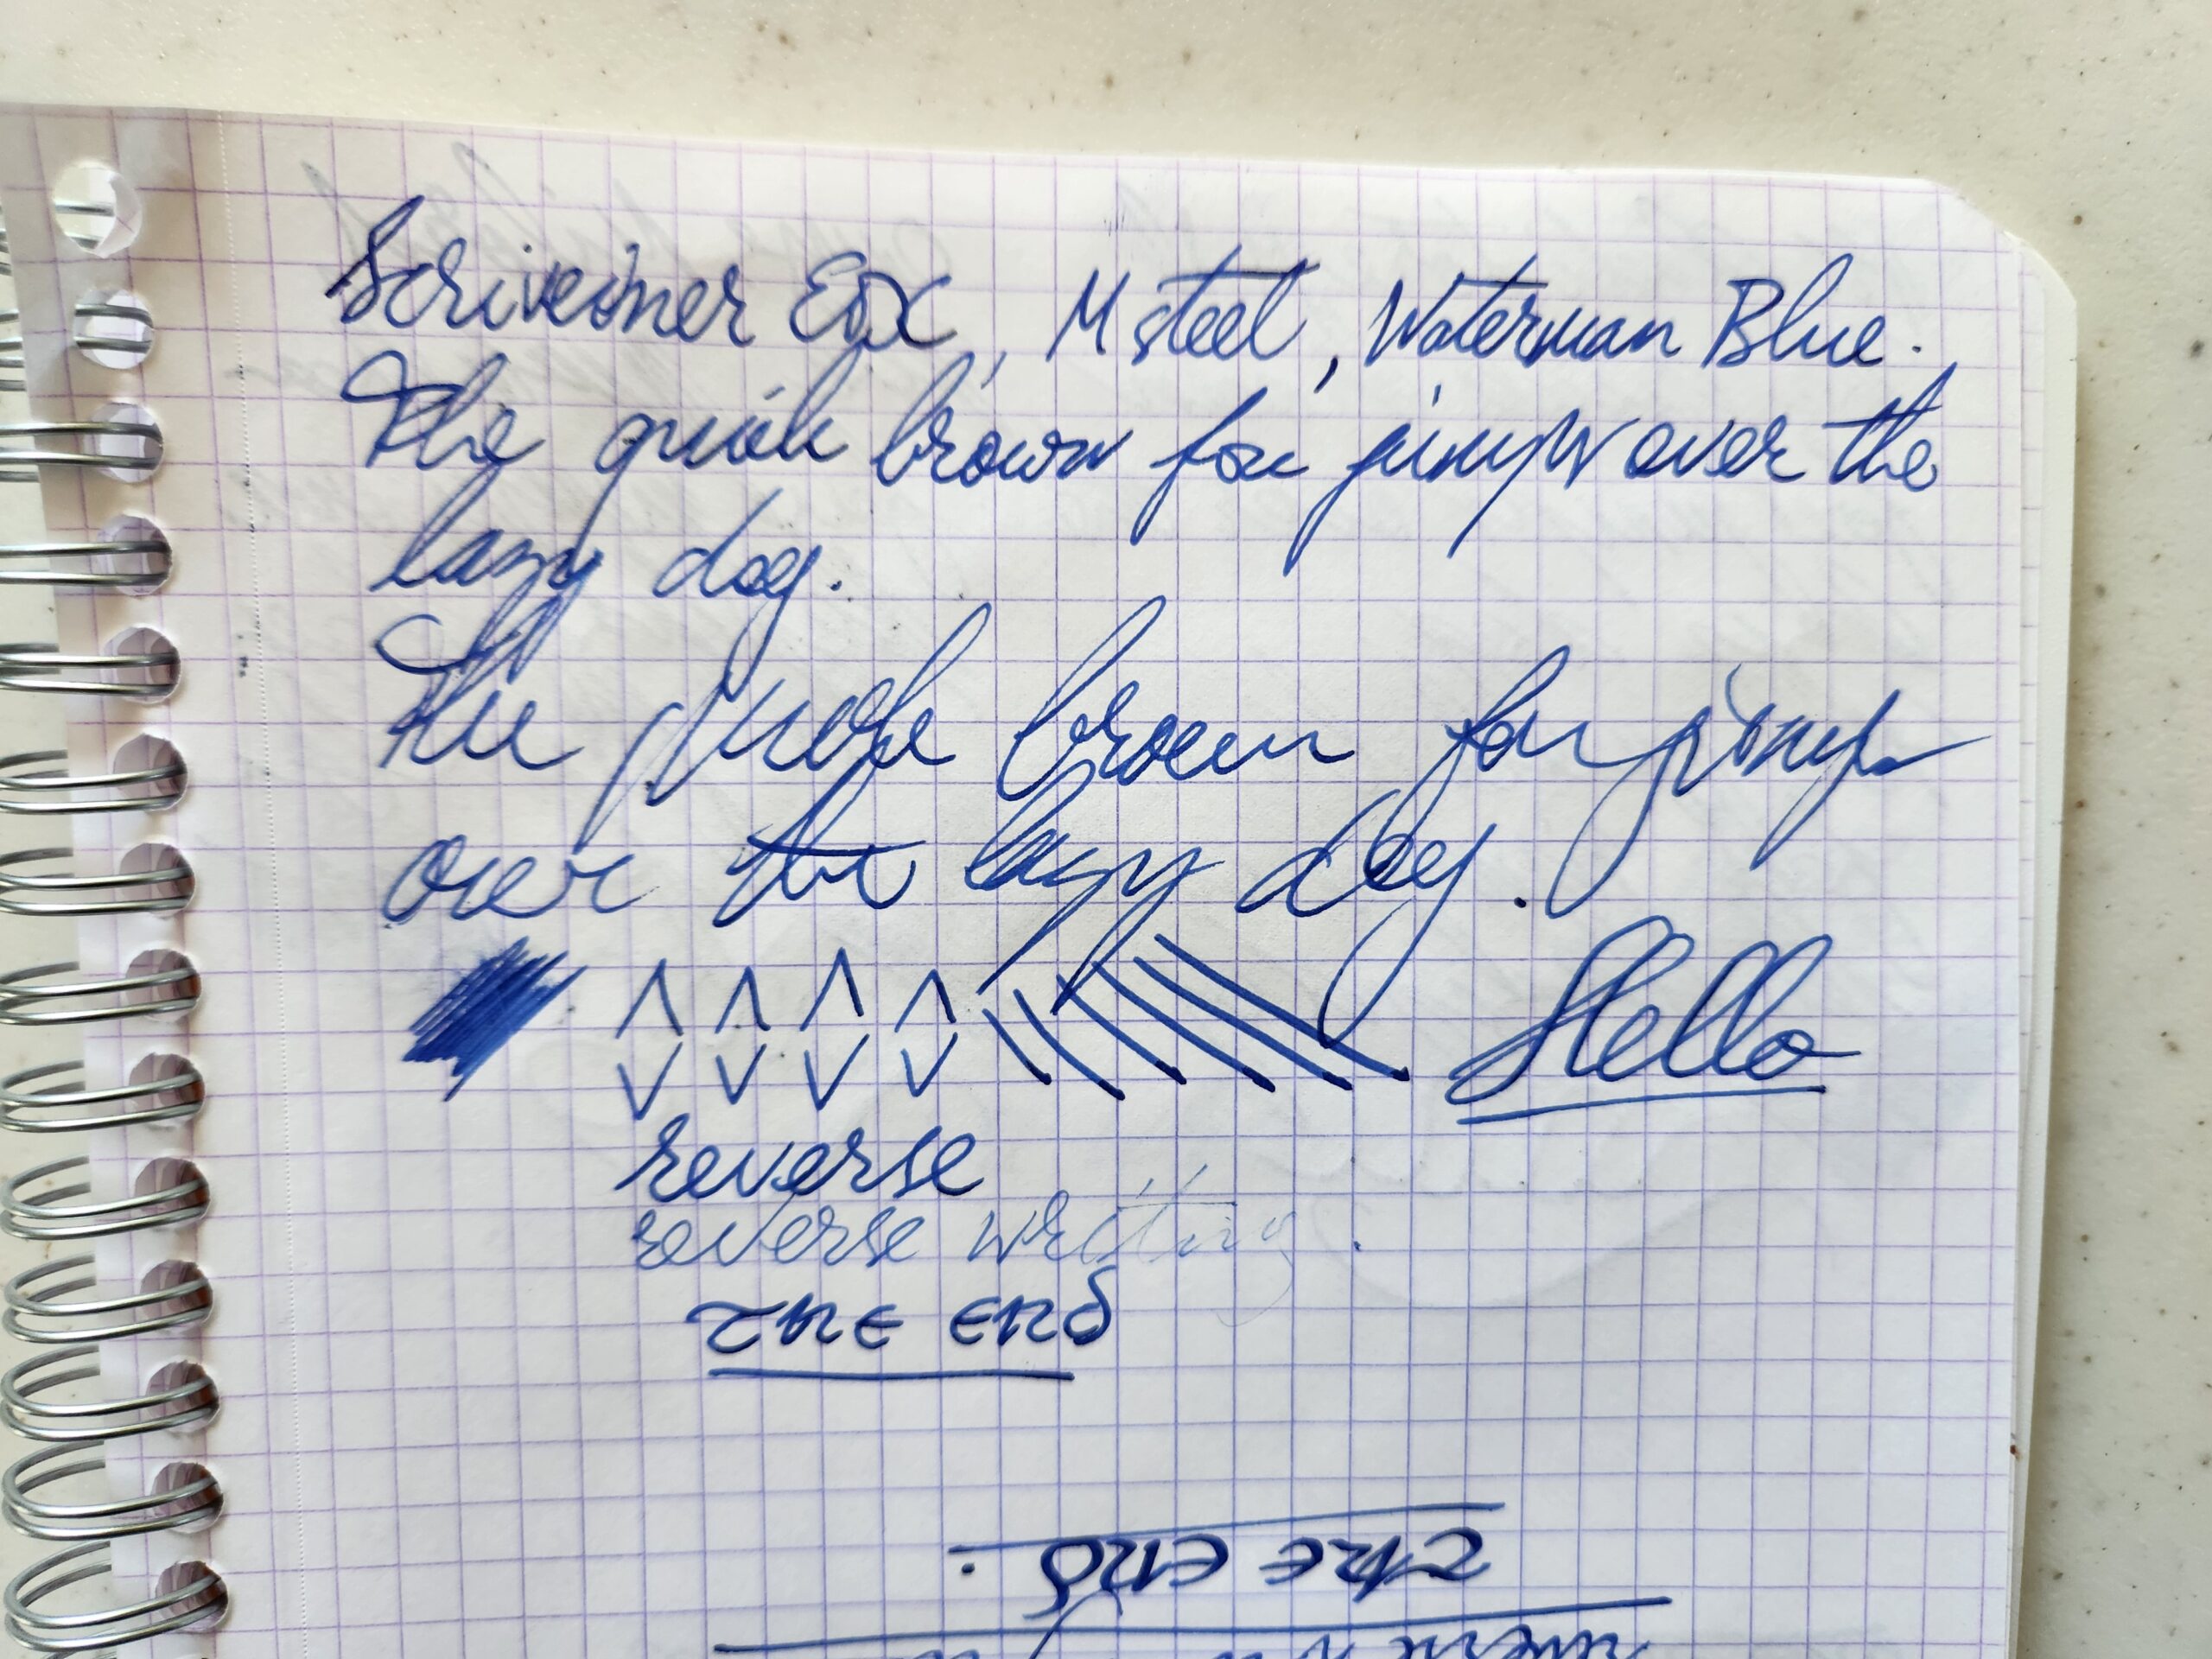 Scriveiner EDC, M steel, Waterman Blue.
The quick brown fox jumps over the
lazy dog.
The quick brown fox jumps
over the lazy dog.
Hello
reverse
reverse writing.
the end
the end.